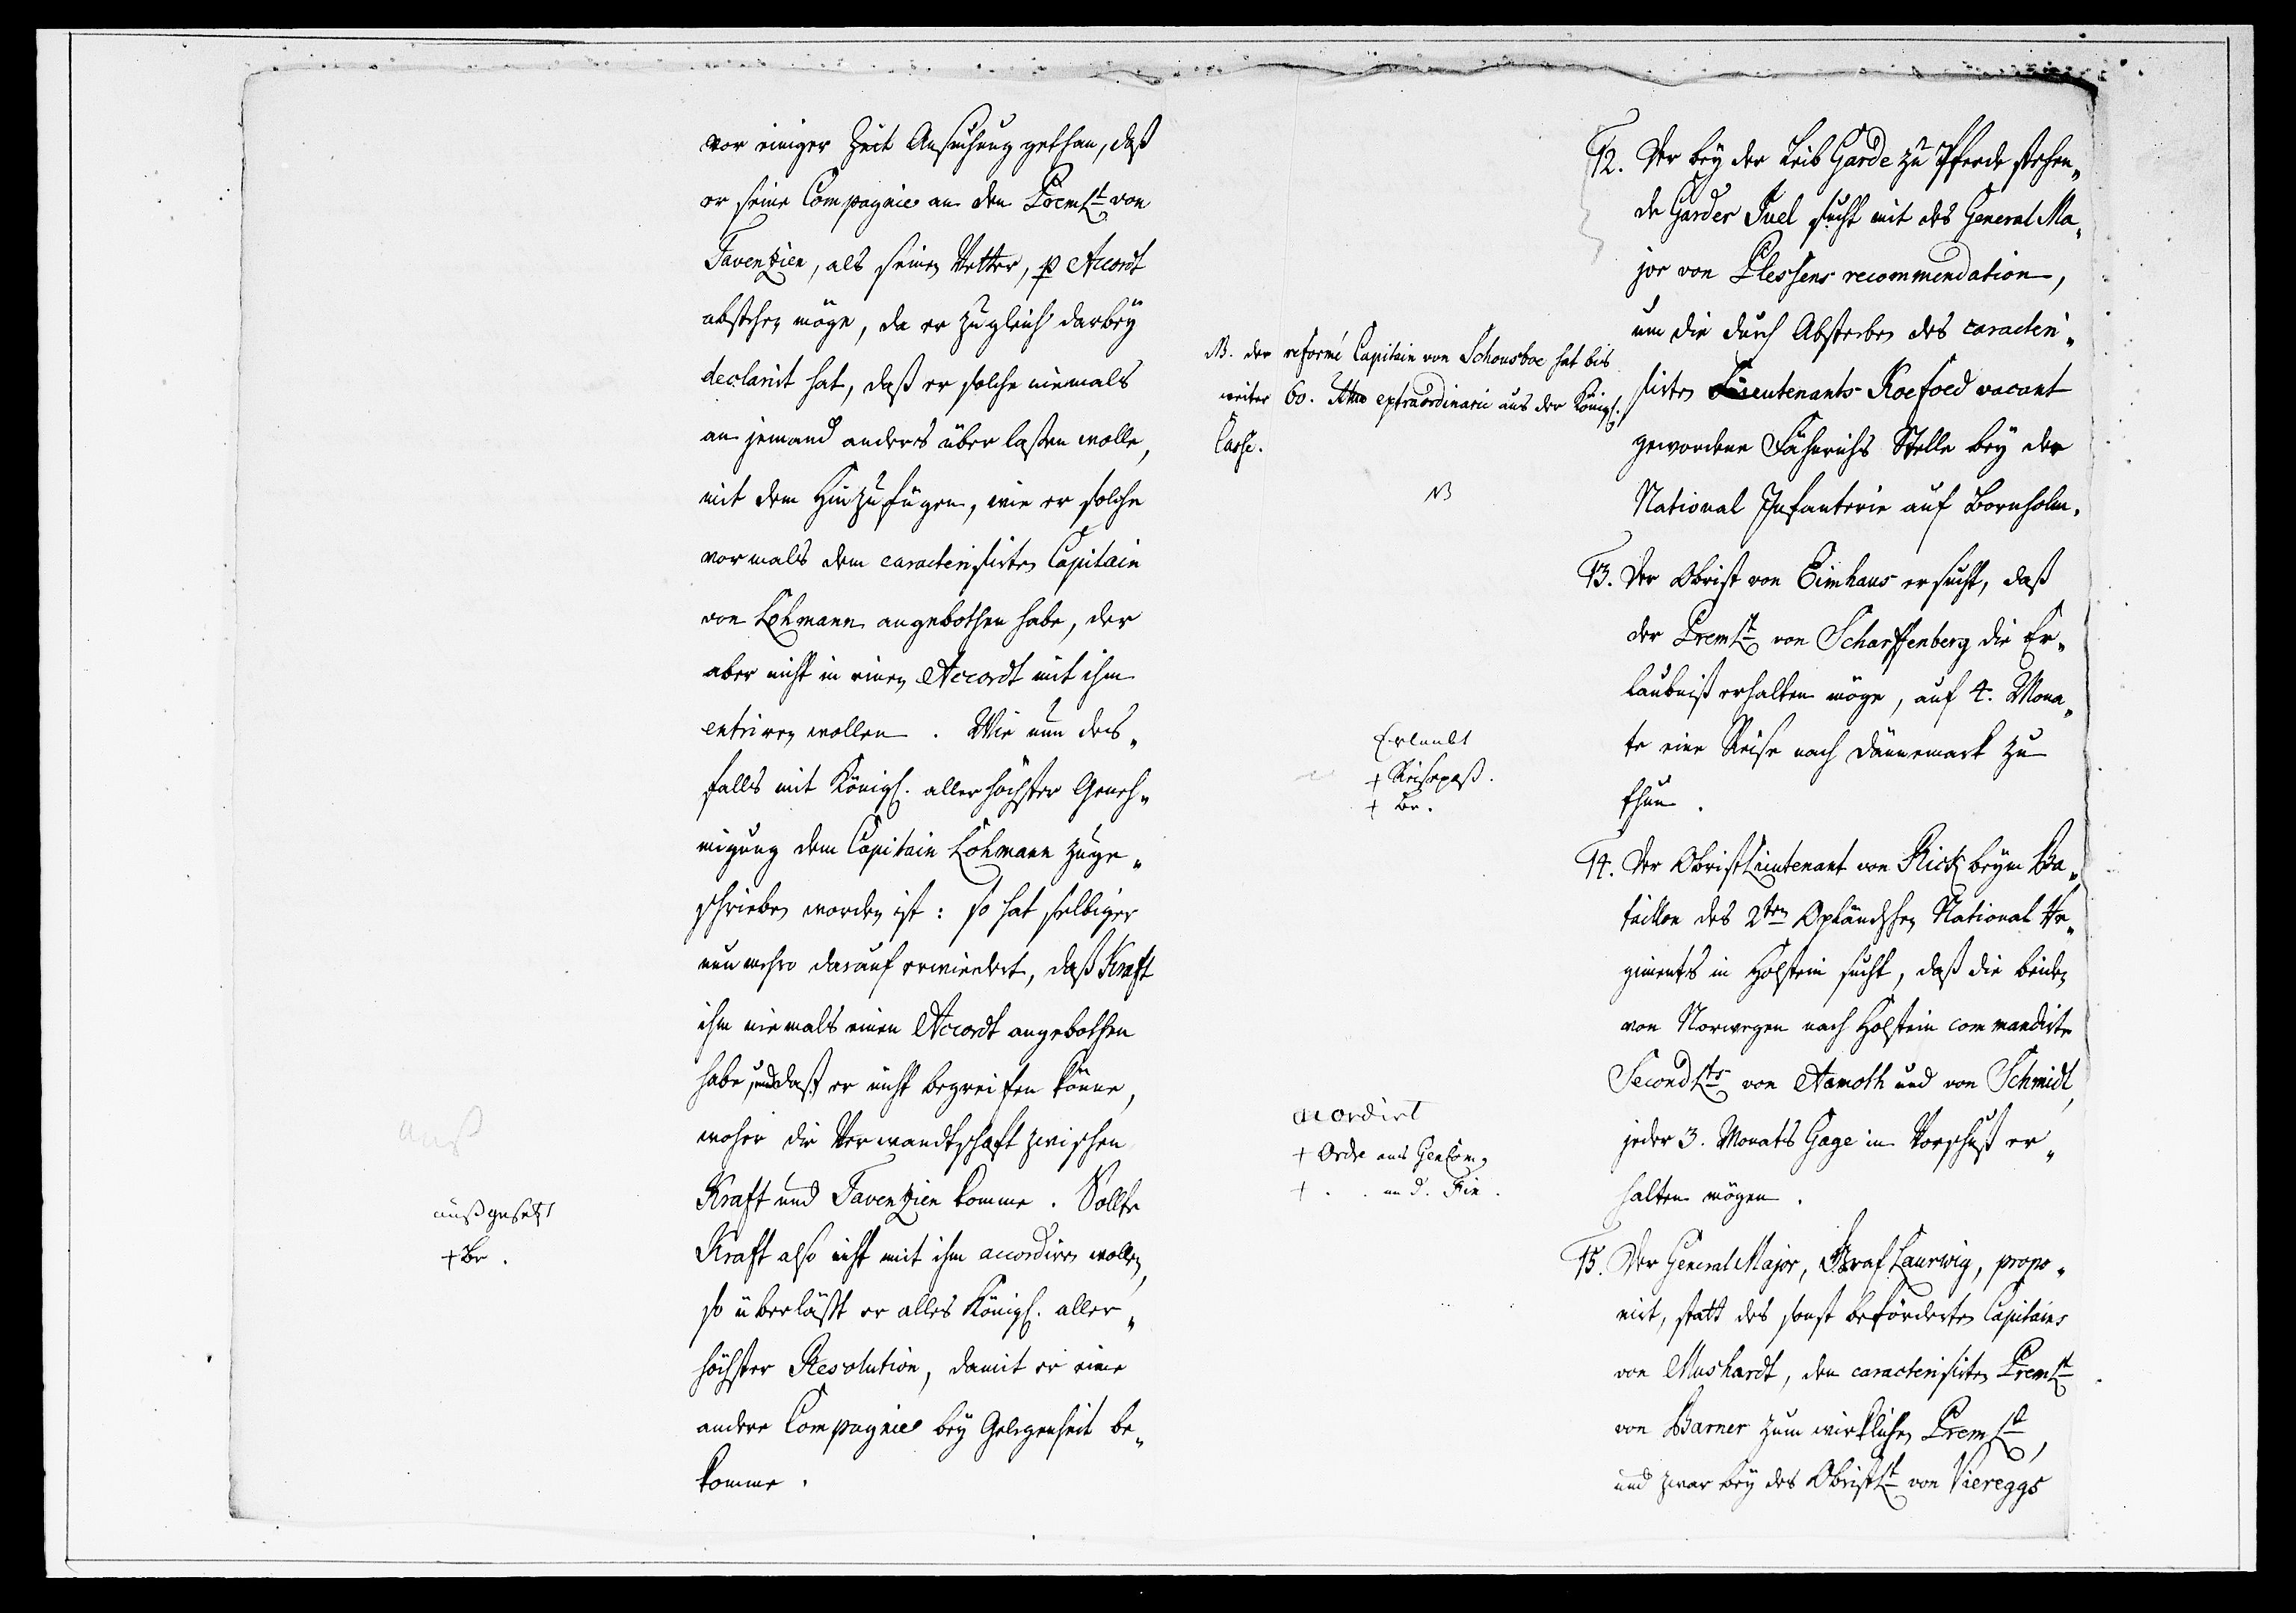 vor einiger Zeit Ansuchung gethan, daß
er seine Compagnie an den PremLt von
Tavenzien, als seinen Vetter, p Accordt
abstehen möge, da er zugleich darbey
declarirt hat, daß er solche niemals
an jemand anders über laßen wolle,
mit dem Hinzufügen, wie er solche
vormals dem caracterisirten Capitain
von Lohmann angebothen habe, der
aber nicht in einen Accordt mit ihm
entriren wollen. Wie nun des„
falls mit Königl. allerhöchster Geneh„
migung dem Capitain Lohmann zuge„
schrieben worden ist: so hat selbiger
nunmehro darauf erwiedert, daß Kraft
ihm niemals einen Accordt angebothen
habe, und daß er nicht begreifen könne,
woher die Verwandtschaft zwischen
Kraft und Tavenzien komme. Sollte
Kraft also nicht mit ihm accordiren wollen,
so überläßt er alles Königl. aller„
höchster Resolution, damit er eine
andere Compagnie bey Gelegenheit be„
komme.
auß
außgesetzt
+ Br.
NB. der reformé Capitain von Schousboe hat bis
weiter 60. extraordinarie aus der Königl.
Casse.
NB
Erlaubt
+ Reisepaß.
+ Br.
accordirt
+ Ordre ans GenCom,
+ . . an d. Fin.
12. Der bey der Leib Garde zu Pferde stehen„
de Garder Juel sucht mit des General Ma„
jor von Plessens recommendation,
um die durch Absterben des caracteri„
sirten Lieutenants Koefoed vacant
gewordene Fähnrichs Stelle bey der
National Infanterie auf Bornholm.
13. Der Obrist von Eimhaus ersucht, daß
der PremLt von Scharffenberg die Er„
laubniß erhalten möge, auf 4. Mona„
te eine Reise nach Dännemark zu
thun.
14. Der Obristlieutenant von Rick beym Ba„
taillon des 2ten Opländschen National Re„
giments in Holstein sucht, daß die beiden
von Norwegen nach Holstein commandirte
SecondLts von Aamoth und von Schmidt,
jeder 3. Monats Gage in Vorschuß er„
halten mögen.
15. Der General Major, Graf Laurwig, propo„
nirt, statt des sonst beförderten Capitains
von Mushardt, den caracterisirten PremLt
von Barner zum wirklichen PremLt,
und zwar bey des ObristLt von Viereggs